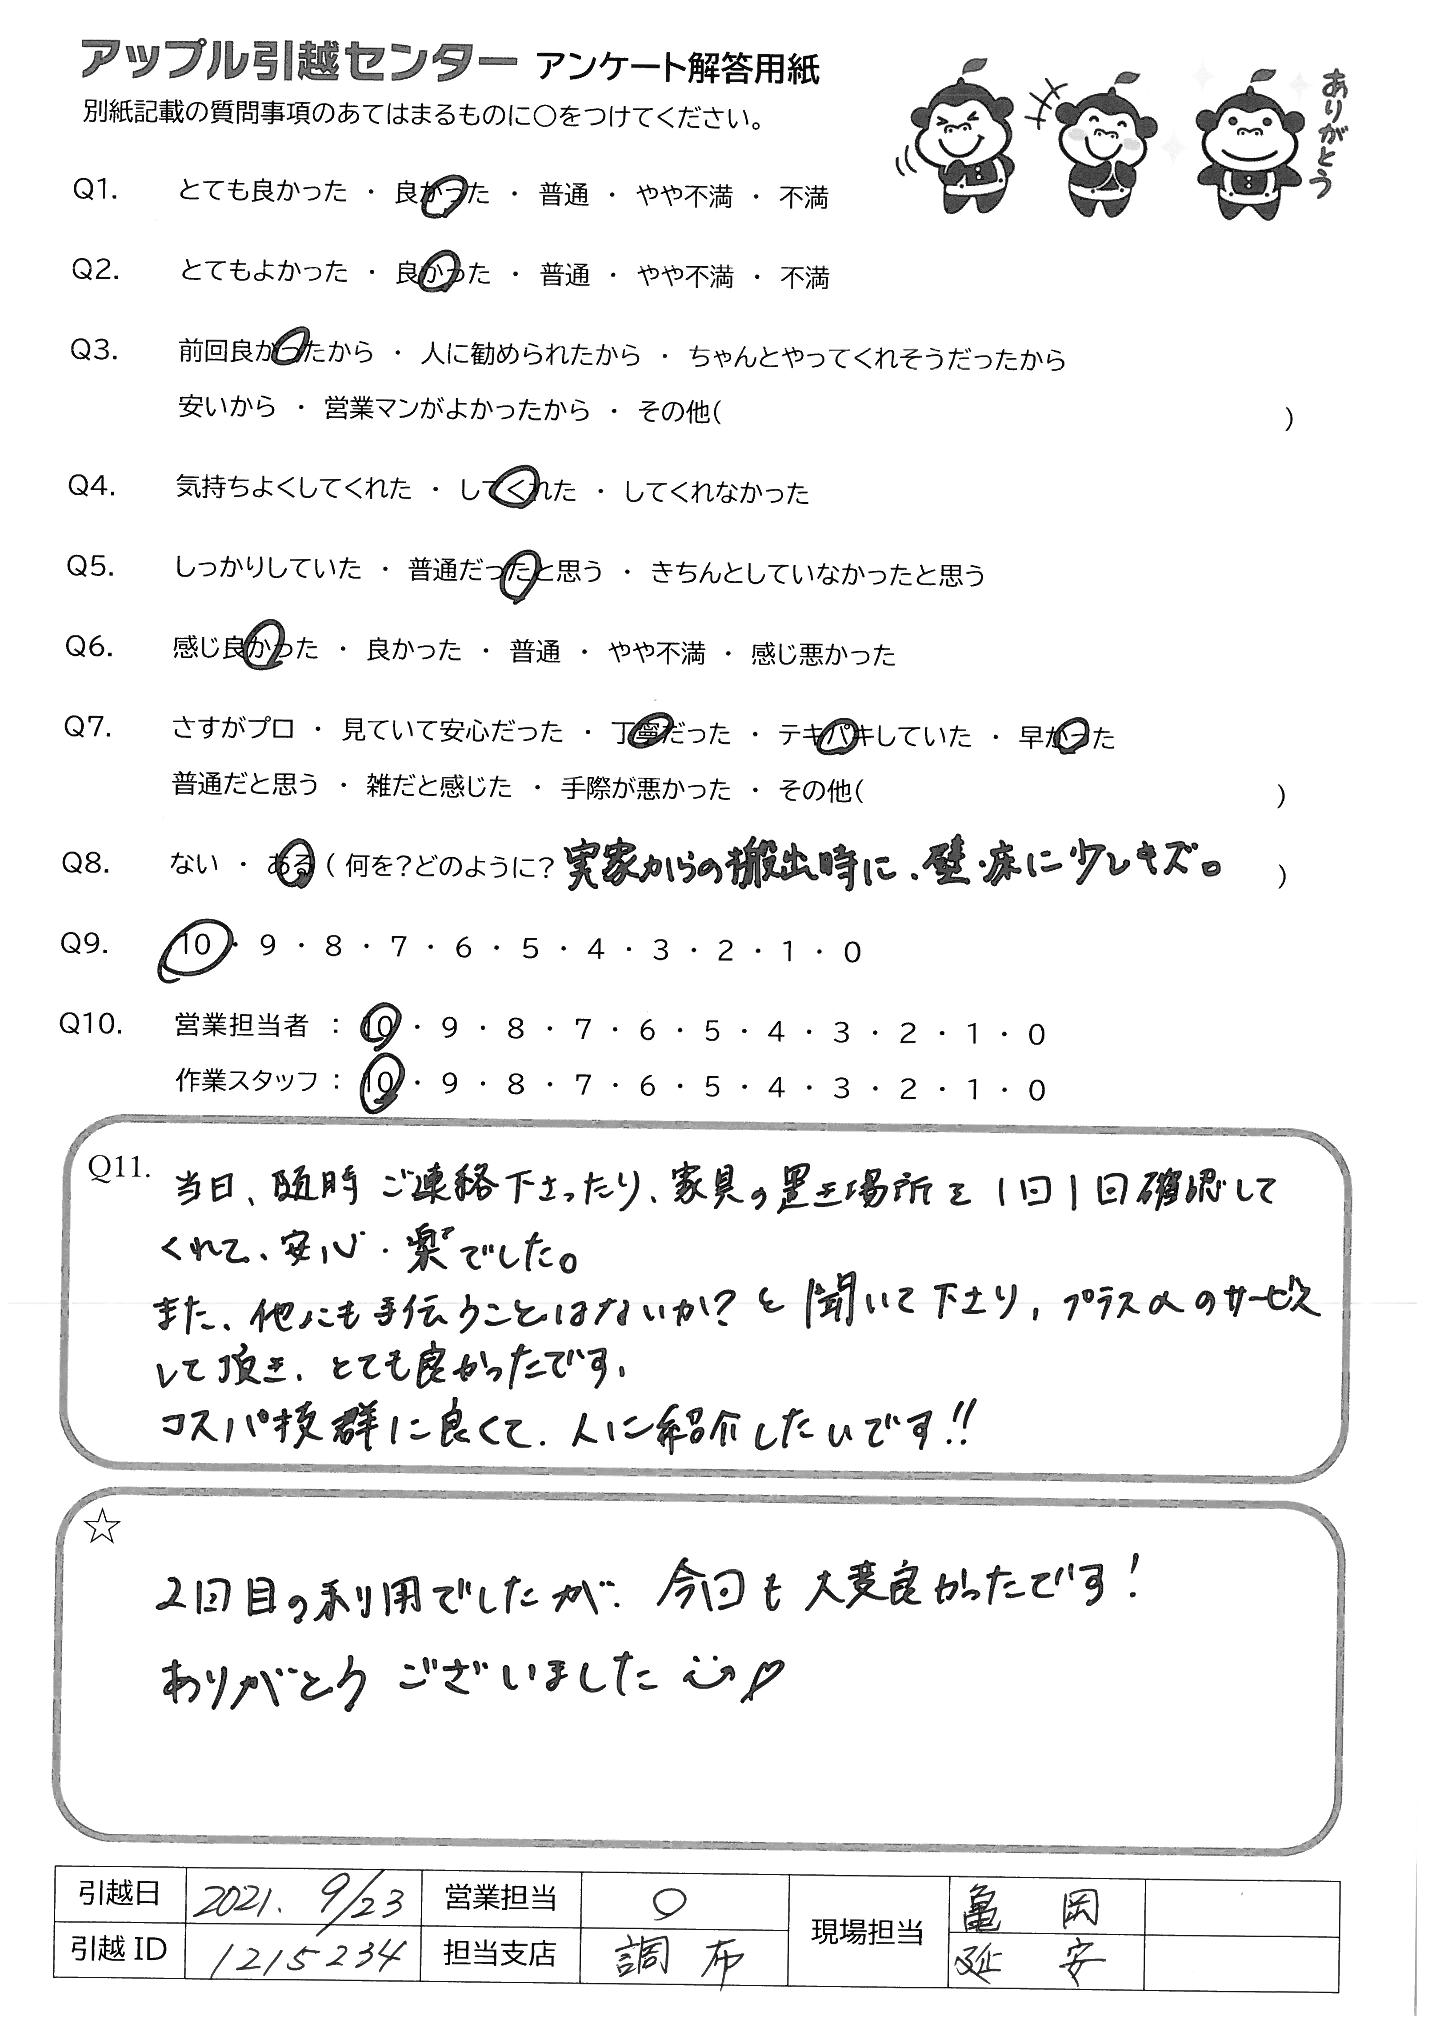 アップル引越センター アンケート解答用紙
別紙記載の質問事項のあてはまるものに〇をつけてください。
ありがとう
Q1. とても良かった ・ 良かった ・ 普通 ・ やや不満 ・ 不満
Q2. とてもよかった ・ 良かった ・ 普通 ・ やや不満 ・ 不満
Q3. 前回良かったから ・ 人に勧められたから ・ ちゃんとやってくれそうだったから
安いから ・ 営業マンがよかったから ・ その他( )
Q4. 気持ちよくしてくれた ・ してくれた ・ してくれなかった
Q5. しっかりしていた ・ 普通だったと思う ・ きちんとしていなかったと思う
Q6. 感じ良かった ・ 良かった ・ 普通 ・ やや不満 ・ 感じ悪かった
Q7. さすがプロ ・ 見ていて安心だった ・ 丁寧だった ・ テキパキしていた ・ 早かった
普通だと思う ・ 雑だと感じた ・ 手際が悪かった ・ その他( )
Q8. ない ・ ある ( 何を?どのように? 実家からの搬出時に、壁・床に少しキズ。 )
Q9. 10 ・ 9 ・ 8 ・ 7 ・ 6 ・ 5 ・ 4 ・ 3 ・ 2 ・ 1 ・ 0
Q10. 営業担当者 : 10 ・ 9 ・ 8 ・ 7 ・ 6 ・ 5 ・ 4 ・ 3 ・ 2 ・ 1 ・ 0
作業スタッフ : 10 ・ 9 ・ 8 ・ 7 ・ 6 ・ 5 ・ 4 ・ 3 ・ 2 ・ 1 ・ 0
Q11. 当日、随時ご連絡下さったり、家具の置き場所を1回1回確認して
くれて、安心・楽でした。
また、他にも手伝うことはないか?と聞いて下さり、プラスαのサービス
して頂き、とても良かったです。
コスパ抜群に良くて、人に紹介したいです!!
☆
2回目の利用でしたが、今回も大変良かったです!
ありがとうございました
引越日 2021. 9/23 営業担当 〇 現場担当 亀岡
引越ID 1215234 担当支店 調布 延安